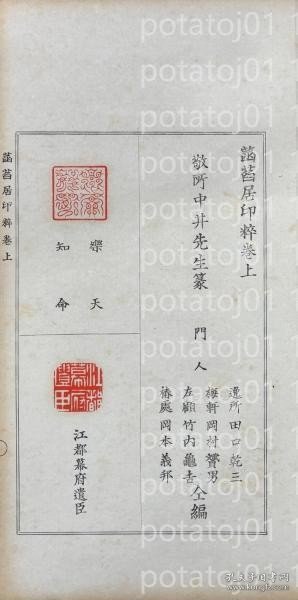 菡萏居印粹卷上
敬所中井先生篆
門人
逸所田口乾三
梅軒岡村贇男
左顧竹內龜吉
椿處岡本義邦
仝編
樂天
知命
江都幕府遺臣
菡萏居印粹卷上
potatoj01
孔夫子旧书网